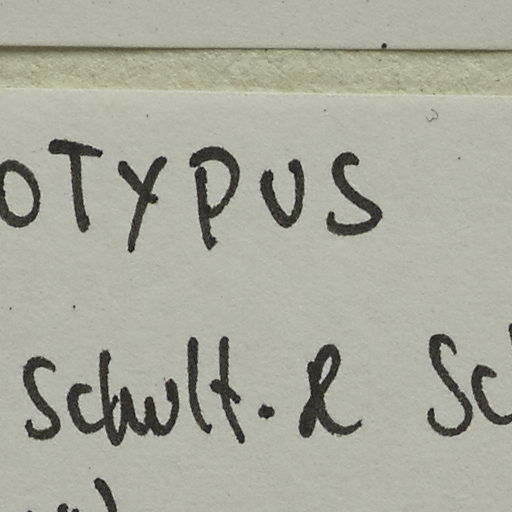 OTYPUS
Schult. & Sc